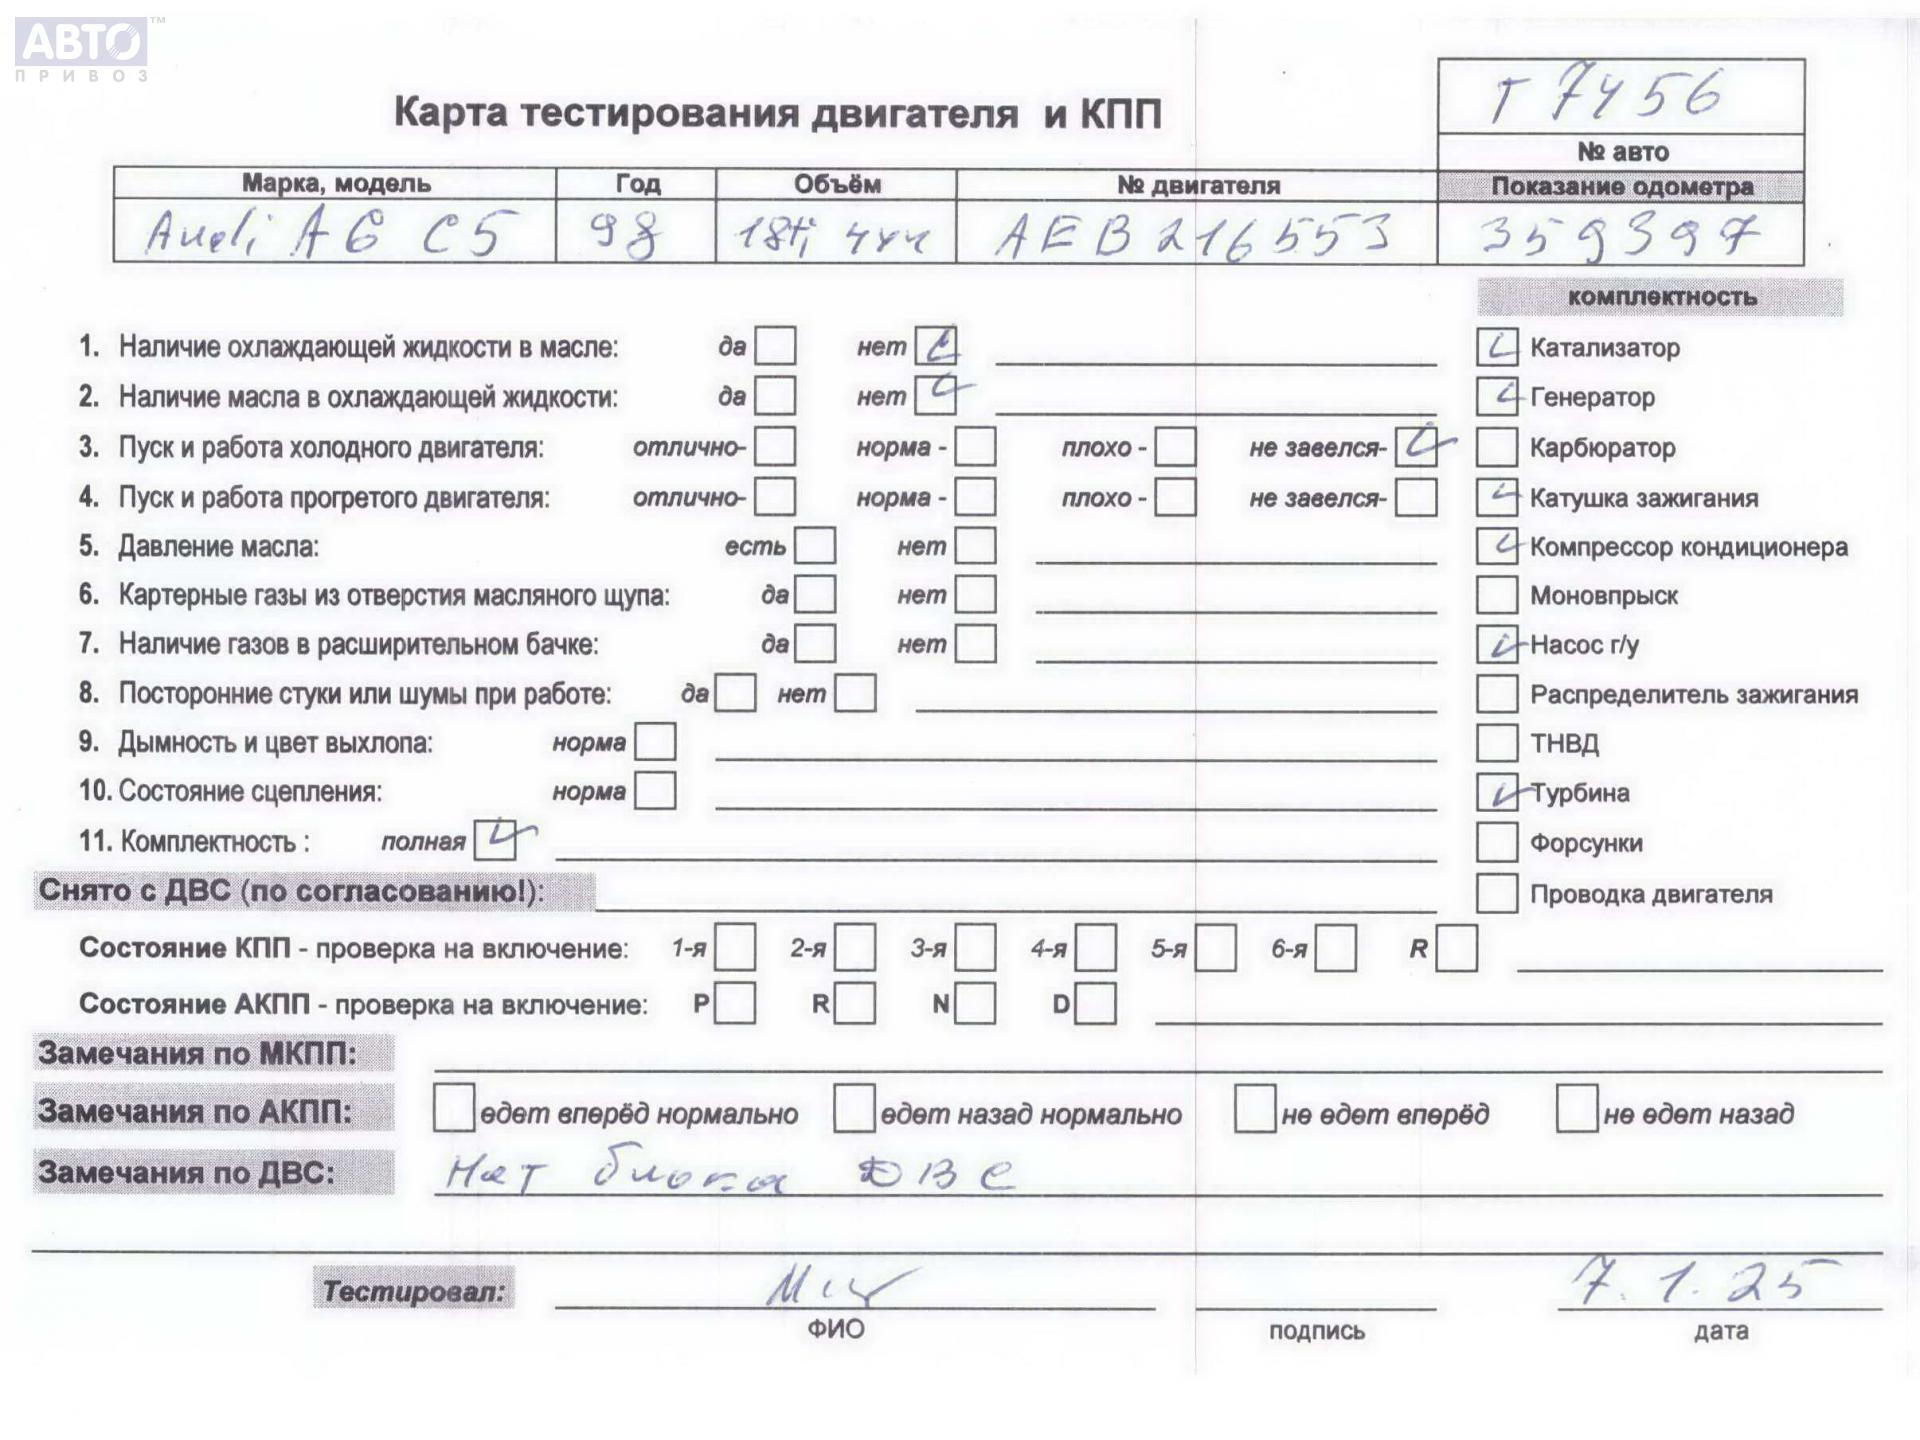 АВТО™
ПРИВОЗ
Т 7456
Карта тестирования двигателя и КПП
№ авто
Марка, модель Год Объём № двигателя Показание одометра
Audi A6 C5 98 1.8ti 4x4 AEB216553 359397
комплектность
1. Наличие охлаждающей жидкости в масле: да нет Катализатор
2. Наличие масла в охлаждающей жидкости: да нет Генератор
3. Пуск и работа холодного двигателя: отлично- норма - плохо - не завелся- Карбюратор
4. Пуск и работа прогретого двигателя: отлично- норма - плохо - не завелся- Катушка зажигания
5. Давление масла: есть нет Компрессор кондиционера
6. Картерные газы из отверстия масляного щупа: да нет Моновпрыск
7. Наличие газов в расширительном бачке: да нет Насос г/у
8. Посторонние стуки или шумы при работе: да нет Распределитель зажигания
9. Дымность и цвет выхлопа: норма ТНВД
10. Состояние сцепления: норма Турбина
11. Комплектность : полная Форсунки
Снято с ДВС (по согласованию!): Проводка двигателя
Состояние КПП - проверка на включение: 1-я 2-я 3-я 4-я 5-я 6-я R
Состояние АКПП - проверка на включение: P R N D
Замечания по МКПП:
Замечания по АКПП: едет вперёд нормально едет назад нормально не едет вперёд не едет назад
Замечания по ДВС: Нет блока ДВС
Тестировал: 7.1.25
ФИО подпись дата